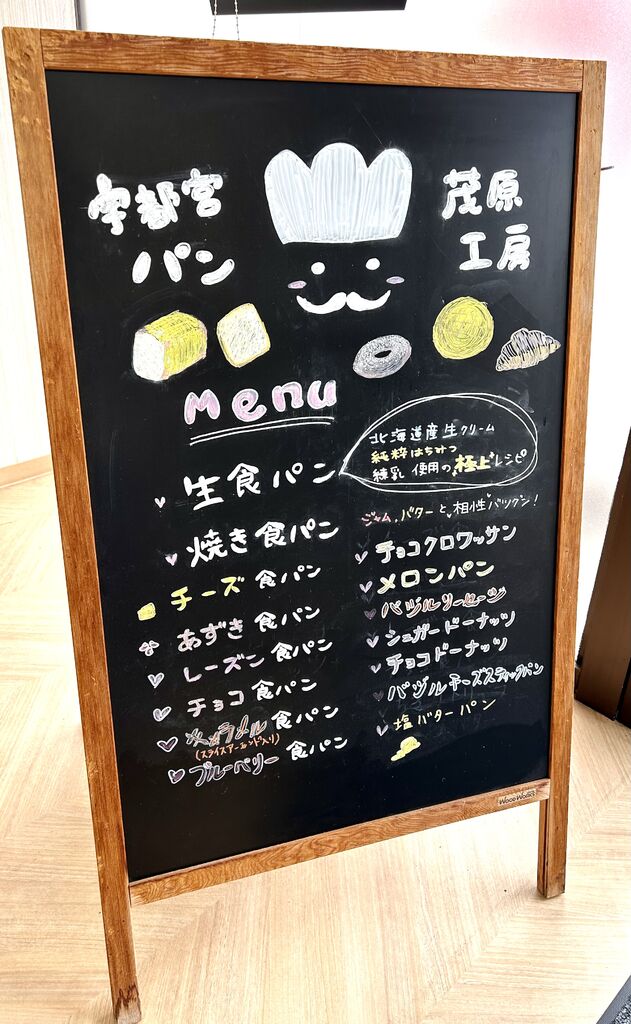 宇都宮
パン
茂原
工房
Menu
生食パン
北海道産生クリーム
純粋はちみつ
練乳 使用の極上レシピ
焼き食パン
ジャム、バターと相性バツグン!
チーズ 食パン
あずき 食パン
レーズン 食パン
チョコ 食パン
キャラメル 食パン
(スライスアーモンド入り)
ブルーベリー 食パン
チョコクロワッサン
メロンパン
バジルソーセージ
シュガードーナッツ
チョコドーナッツ
バジルチーズスティックパン
塩バターパン
Wood Works